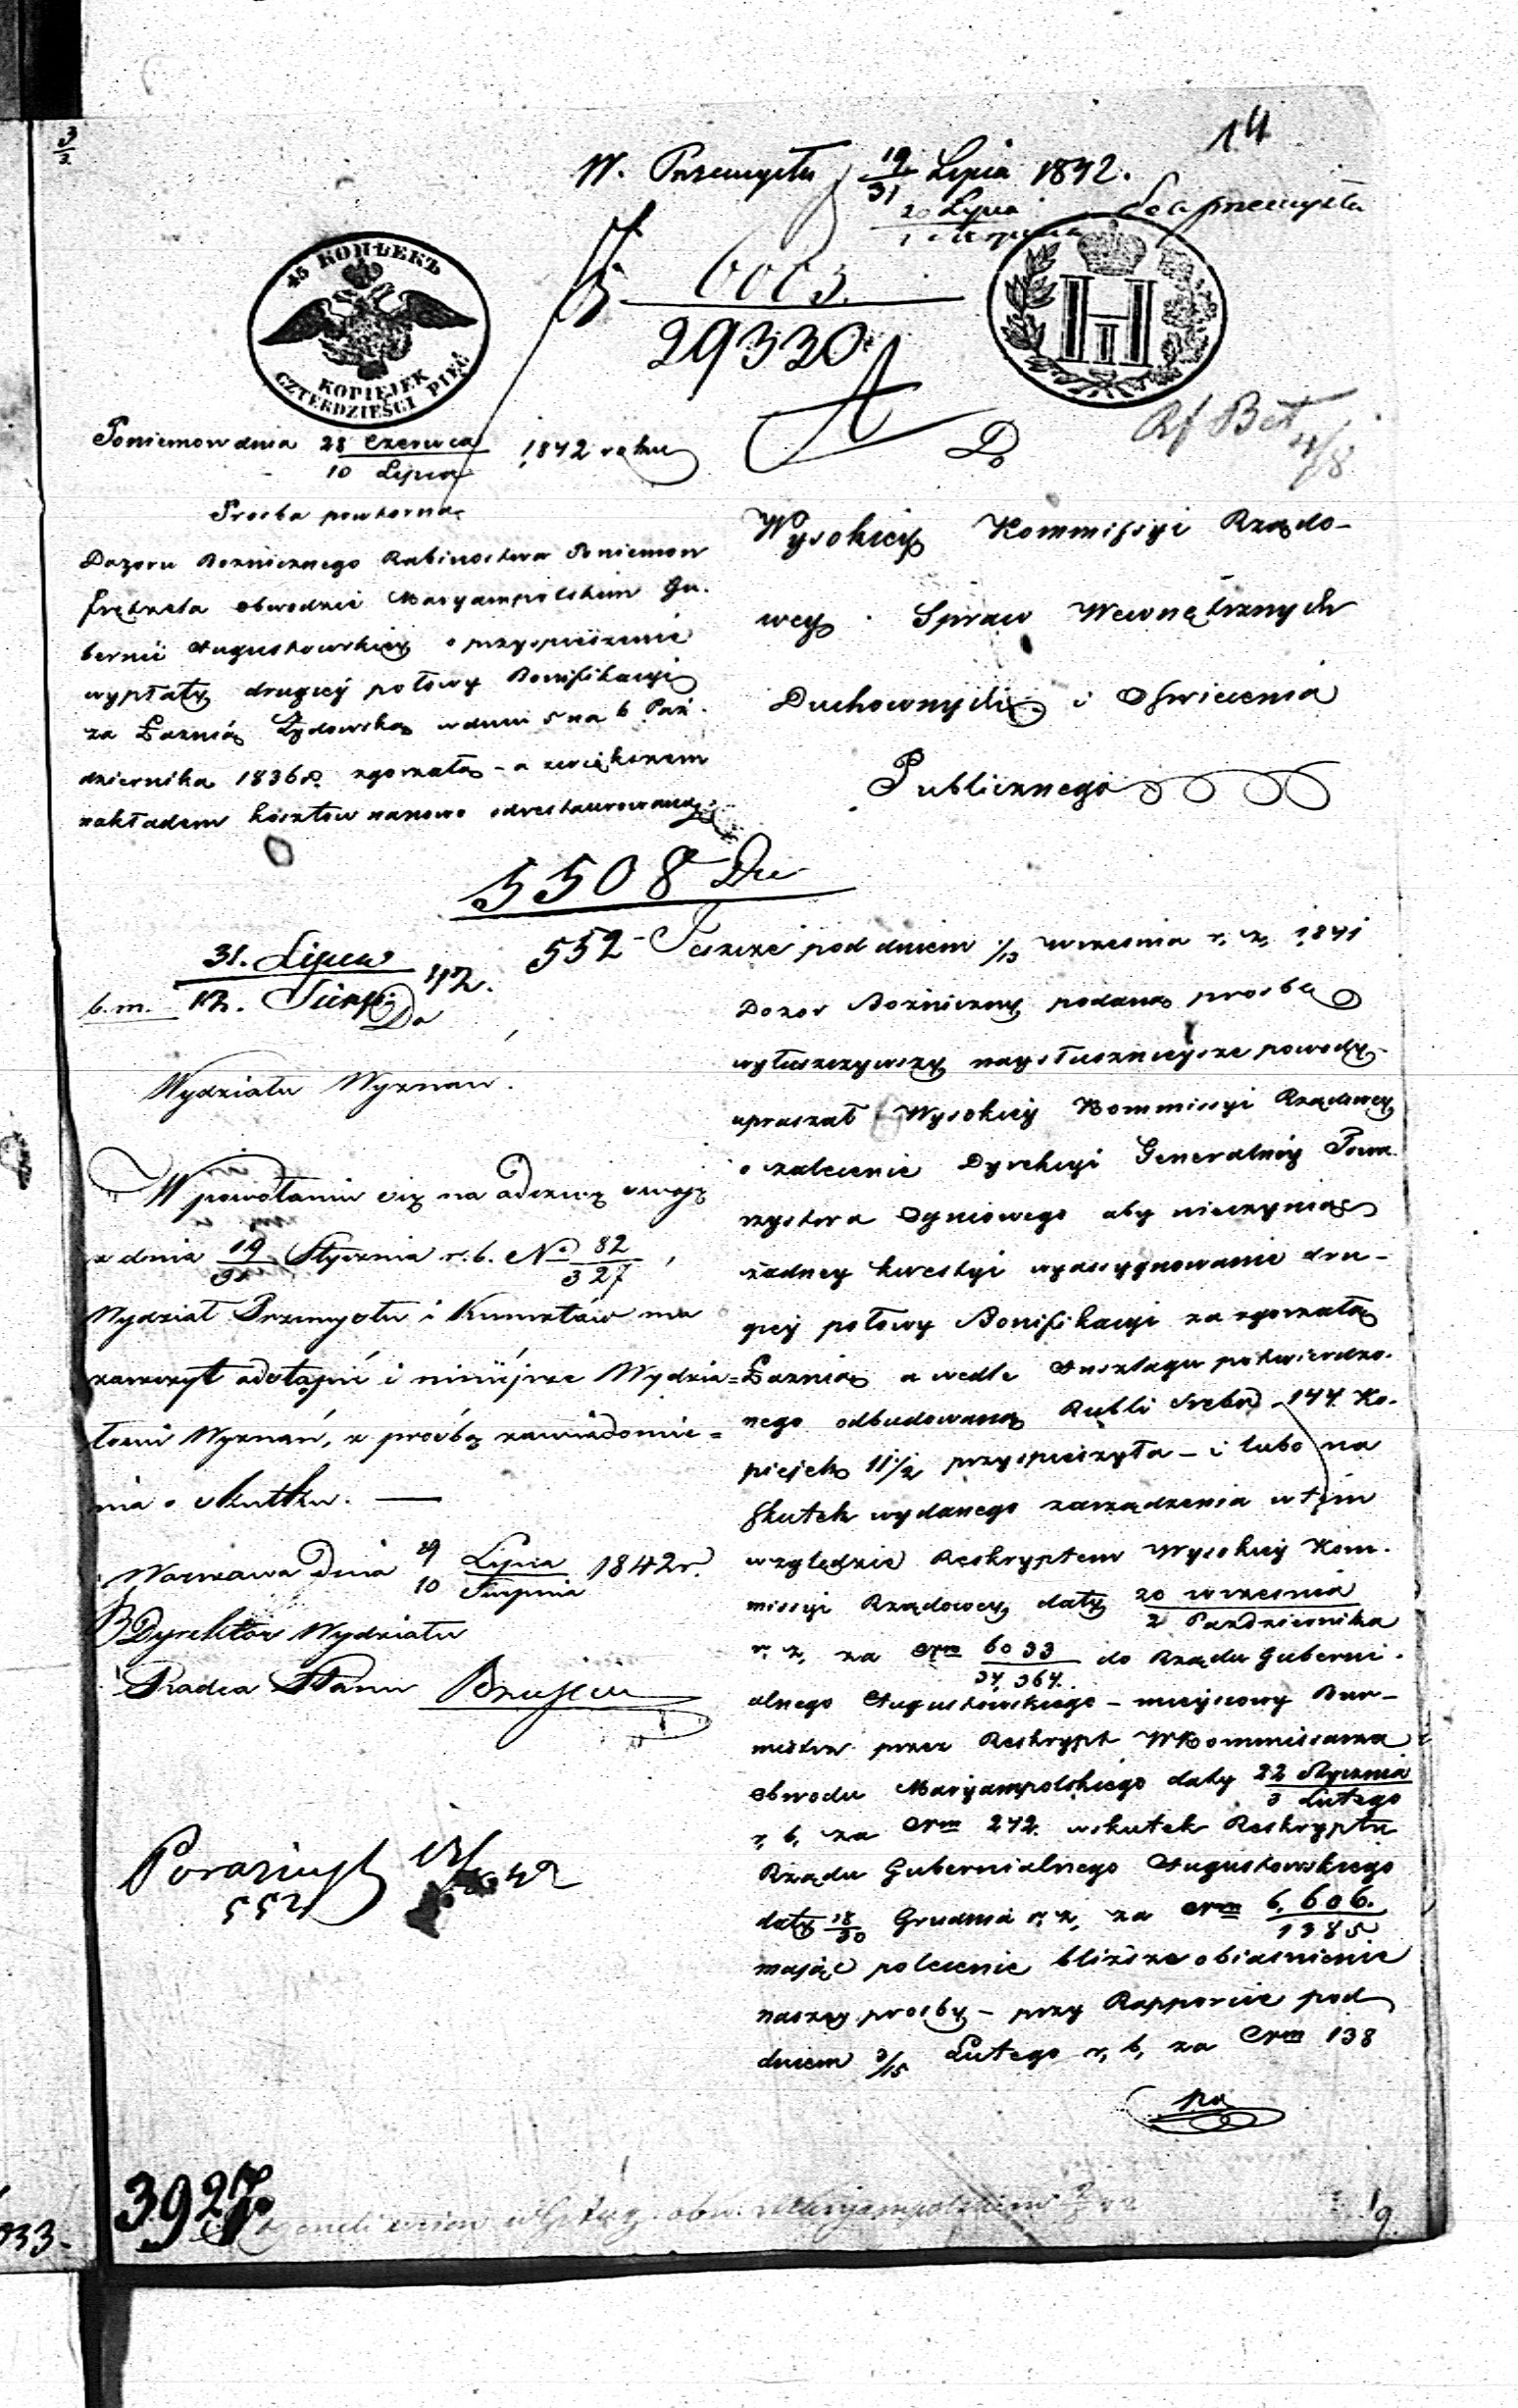 14
W. Przemysłu 19/31 Lipca 1842.
20 Lipca
1 Sierpnia
45 КОПѢЕКЪ
KOPIEJEK
CZTERDZIEŚCI PIĘĆ
29330
H
II
Poniemon dnia 28 Czerwca / 10 Lipca 1842 roku
Do
Prosba powtorna
Dozoru Bozniczego Rabinostwa Poniemon
Frętzela Obwodzie Maryampolskim Gu-
bernii Augustowskiey o przyspieszenie
wypłaty drugiey połowy Bonifikacyi
za Łaznią Żydowską w dniu 5 na 6 Paź-
dziernika 1836 r. zgorzałą - a zwiększem
nakładem kosztow nanowo odrestaurowaną
Wysokiey Kommissyi Rządo-
wey Spraw Wewnętrznych
Duchownych i Oswiecenia
Publicznego
5508
552
31. Lipca / 12. Sierp. 42.
b.m.
Do
Wydziału Wyznań.
W powołaniu się na odezwę swoję
z dnia 19/31 Stycznia r.b. No 82/327,
Wydział Przemysłu i Kunsztów ma
zaszczyt odstąpić i niniejsze Wydzia=
łowi Wyznań, z prośbą zawiadomie=
nia o skutku.
Warszawa Dnia 29 Lipca / 10 Sierpnia 1842 r.
Dyrektor Wydziału
Radca Stanu
552
Jeszcze pod dniem 1/13 wrzesnia r. z. 1841
Dozor Bozniczny podaną prosbą
wyłuszczywszy naysłusznieysze powody
upraszał Wysokiey Kommissyi Rządowey
o zalecenie Dyrekcyi Generalney Towa-
rzystwa Ogniowego aby nieczyniąc
żadney kwestyi wyassygnowanie dru-
giey połowy Bonifikacyi za zgorzałą
Łaznią a wedle Anszlagu potwierdzo-
nego odbudowaną Rubli Srebr. 144 Ko-
piejek 11 1/2 przyspieszyła - i lubo na
skutek wydanego zarządzenia w tym
względzie Reskryptem Wysokiey Kom-
missyi Rządowey daty 20 wrzesnia / 2 Pazdziernika
r. z. za Nrm 6033 / 34,364. do Rządu Guberni-
alnego Augustowskiego - mieyscowy Bur-
mistrz przez Reskrypt W Kommissarza
Obwodu Maryampolskiego daty 22 Stycznia / 3 Lutego
r. b. za Nrm 242. wskutek Reskryptu
Rządu Gubernialnego Augustowskiego
daty 18/30 Grudnia r. z. za Nrm 6,606. / 1385
mając polecenie bliższe obiasnienie
naszey prosby - przy Rapporcie pod
dniem 3/15 Lutego r. b. za Nrm 138
3927
19